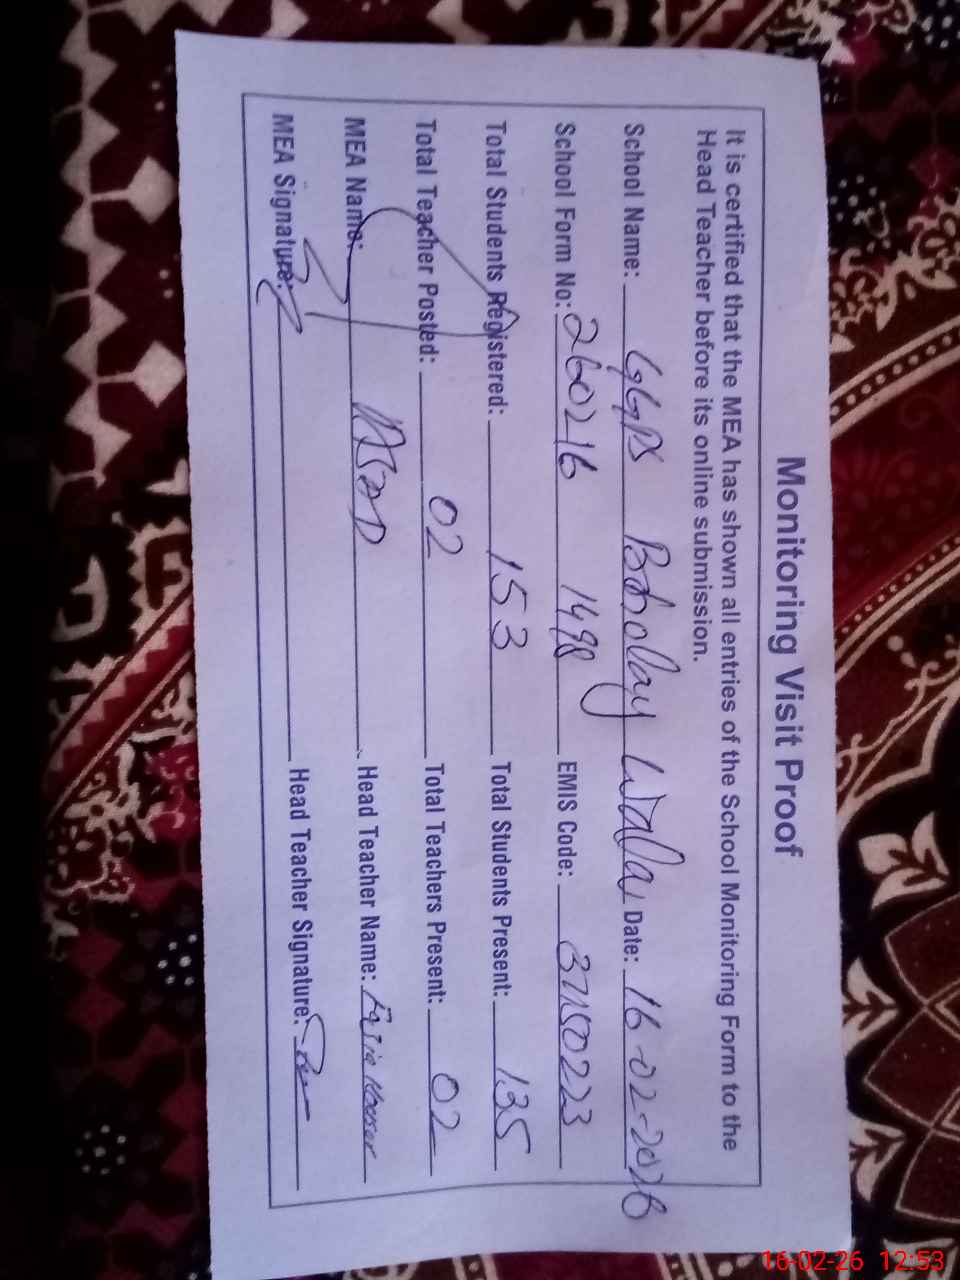 Monitoring Visit Proof
It is certified that the MEA has shown all entries of the School Monitoring Form to the
Head Teacher before its online submission.
School Name: GGPS Baholay Walla Date: 16-02-2026
School Form No: 260216 1498 EMIS Code: 37150223
Total Students Registered: 153 Total Students Present: 135
Total Teacher Posted: 02 Total Teachers Present: 02
MEA Name: ASAD Head Teacher Name: Fozia Kouser
MEA Signature: Head Teacher Signature:
16-02-26 12:53